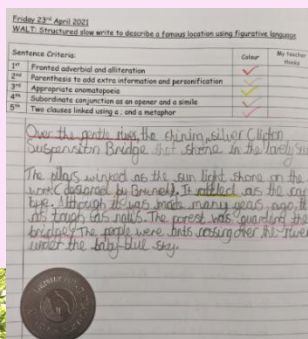 Friday 23rd April 2021
WALT: Structured slow write to describe a famous location using figurative language
Sentence Criteria:
Colour
My teacher thinks
1st Fronted adverbial and alliteration
2nd Parenthesis to add extra information and personification
3rd Appropriate onomatopoeia
4th Subordinate conjunction as an opener and a simile
5th Two clauses linked using a ; and a metaphor
Over the gentle river, the shining, silver Clifton
Suspension Bridge that shone in the lovely sun
The pillars winked as the sun light shone on the
work (designed by Brunel). It rattled as the car
bye. Although it was made many years ago, it
as tough as nails. The forest was guarding the
bridge; The people were ants rossing over the river
under the baby-blue sky.